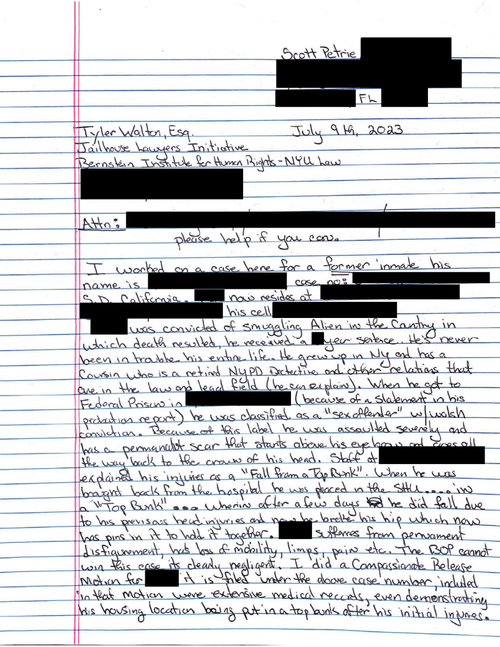 Scott Petrie
FL
Tyler Walton, Esq. July 9th, 2023
Jailhouse Lawyers Initiative
Bernstein Institute for Human Rights - NYU Law
Attn:
please help if you can.
I worked on a case here for a former inmate his
name is case no:
S.D. California. now resides at
his cell
was convicted of smuggling Alien into the Country in
which death resulted, he received a year sentence. He's never
been in trouble his entire life. He grew up in NY and has a
Cousin who is a retired NYPD Detective and other relations that
are in the law and legal field (he can explain). When he got to
Federal Prison in (because of a statement in his
probation report) he was classified as a "sex offender" w/ no such
conviction. Because of this label he was assaulted severely and
has a permanent scar that starts above his eyebrow and goes all
the way back to the crown of his head. Staff at
explained his injuries as a "Fall from a Top Bunk". When he was
brought back from the hospital he was placed in the SHU .... in
a "Top Bunk" ... wherein after a few days he did fall due
to his previous head injuries and now he broke his hip which now
has pins in it to hold it together. suffers from permanent
disfigurement, has loss of mobility, limps, pain etc. The BOP cannot
win this case its clearly negligent. I did a Compassionate Release
Motion for it is filed under the above case number, included
in that motion were extensive medical records, even demonstrating
his housing location being put in a top bunk after his initial injuries.